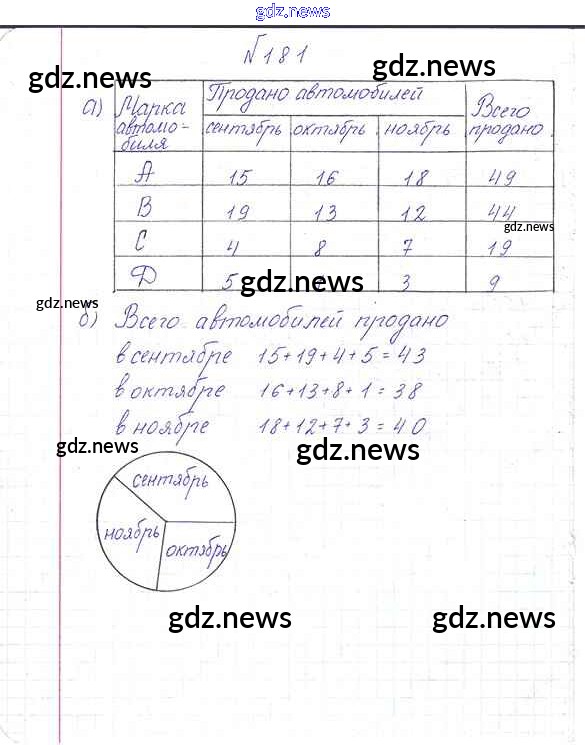 gdz.news
№181
gdz.news
gdz.news
а) Марка автомобиля Продано автомобилей Всего продано
сентябрь октябрь ноябрь
A 15 16 18 49
B 19 13 12 44
gdz.news
C 4 8 7 19
D 5 3 9
gdz.news
gdz.news
б) Всего автомобилей продано
в сентябре 15+19+4+5=43
в октябре 16+13+8+1=38
в ноябре 18+12+7+3=40
gdz.news
gdz.news
сентябрь
ноябрь
октябрь
gdz.news
gdz.news